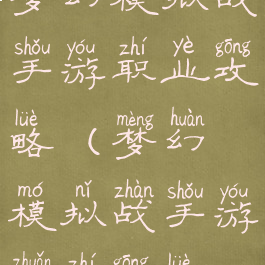 梦幻模拟战
shǒu yóu zhí yè gōng
手游职业攻
lüè mèng huàn
略（梦幻
mó nǐ zhàn shǒu yóu
模拟战手游
zhuǎn zhí gōng lüè